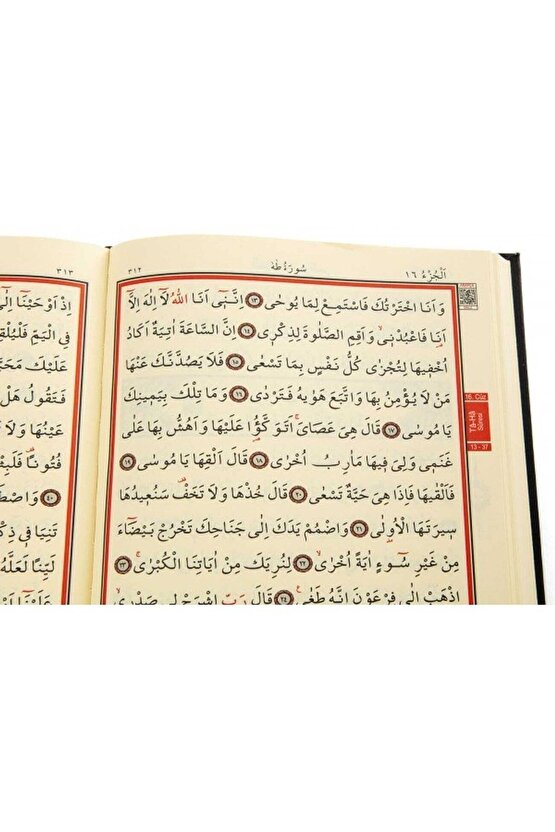 اَلْجُزْءُ ١٦
سُورَةُ طٰهٰ
٣١٢
وَاَنَا اخْتَرْتُكَ فَاسْتَمِعْ لِمَا يُوحٰى ﴿١٣﴾ اِنَّن۪ٓي اَنَا اللّٰهُ لَٓا اِلٰهَ اِلَّٓا
اَنَا فَاعْبُدْن۪يۙ وَاَقِمِ الصَّلٰوةَ لِذِكْر۪ي ﴿١٤﴾ اِنَّ السَّاعَةَ اٰتِيَةٌ اَكَادُ
اُخْف۪يهَا لِتُجْزٰى كُلُّ نَفْسٍ بِمَا تَسْعٰى ﴿١٥﴾ فَلَا يَصُدَّنَّكَ عَنْهَا
مَنْ لَا يُؤْمِنُ بِهَا وَاتَّبَعَ هَوٰيهُ فَتَرْدٰى ﴿١٦﴾ وَمَا تِلْكَ بِيَم۪ينِكَ
يَا مُوسٰى ﴿١٧﴾ قَالَ هِيَ عَصَايَۚ اَتَوَكَّؤُ۬ا عَلَيْهَا وَاَهُشُّ بِهَا عَلٰى
غَنَم۪ي وَلِيَ ف۪يهَا مَاٰرِبُ اُخْرٰى ﴿١٨﴾ قَالَ اَلْقِهَا يَا مُوسٰى ﴿١٩﴾
فَاَلْقٰيهَا فَاِذَا هِيَ حَيَّةٌ تَسْعٰى ﴿٢٠﴾ قَالَ خُذْهَا وَلَا تَخَفْ سَنُع۪يدُهَا
س۪يرَتَهَا الْاُو۫لٰى ﴿٢١﴾ وَاضْمُمْ يَدَكَ اِلٰى جَنَاحِكَ تَخْرُجْ بَيْضَٓاءَ
مِنْ غَيْرِ سُٓوءٍ اٰيَةً اُخْرٰىۙ ﴿٢٢﴾ لِنُرِيَكَ مِنْ اٰيَاتِنَا الْكُبْرٰىۚ ﴿٢٣﴾
اِذْهَبْ اِلٰى فِرْعَوْنَ اِنَّهُ طَغٰى۟ ﴿٢٤﴾ قَالَ رَبِّ اشْرَحْ ل۪ي صَدْر۪يۙ
16. Cüz
Tâ-Hâ
Sûresi
13 - 37
٣١٣
اِذْ اَوْحَيْنَٓا اِلٰٓى
فِي الْيَمِّ فَلْيُلْقِ
عَلَيْكَ مَحَبَّ
فَتَقُولُ هَلْ
عَيْنُهَا وَلَا
فُتُونًا۠ فَلَبِثْ
﴿٤٠﴾ وَاصْطَ
تَنِيَا ف۪ي ذِكْ
لَيِّنًا لَعَلَّهُ
عَلَيْنَٓا